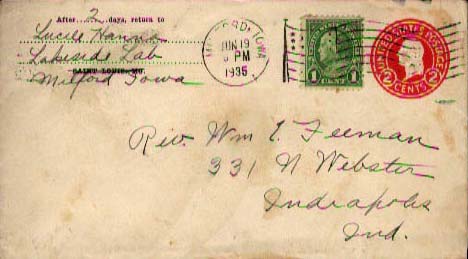 After 2 days, return to
Lucile Hanna
Lakeside Lab
SAINT LOUIS, MO.
Milford Iowa
MILFORD, IOWA
JUN 19
PM
1935
1 1
UNITED STATES POSTAGE
2 2
CENTS
Rev. Wm E. Feeman
331 N Webster
Indianapolis
Ind.